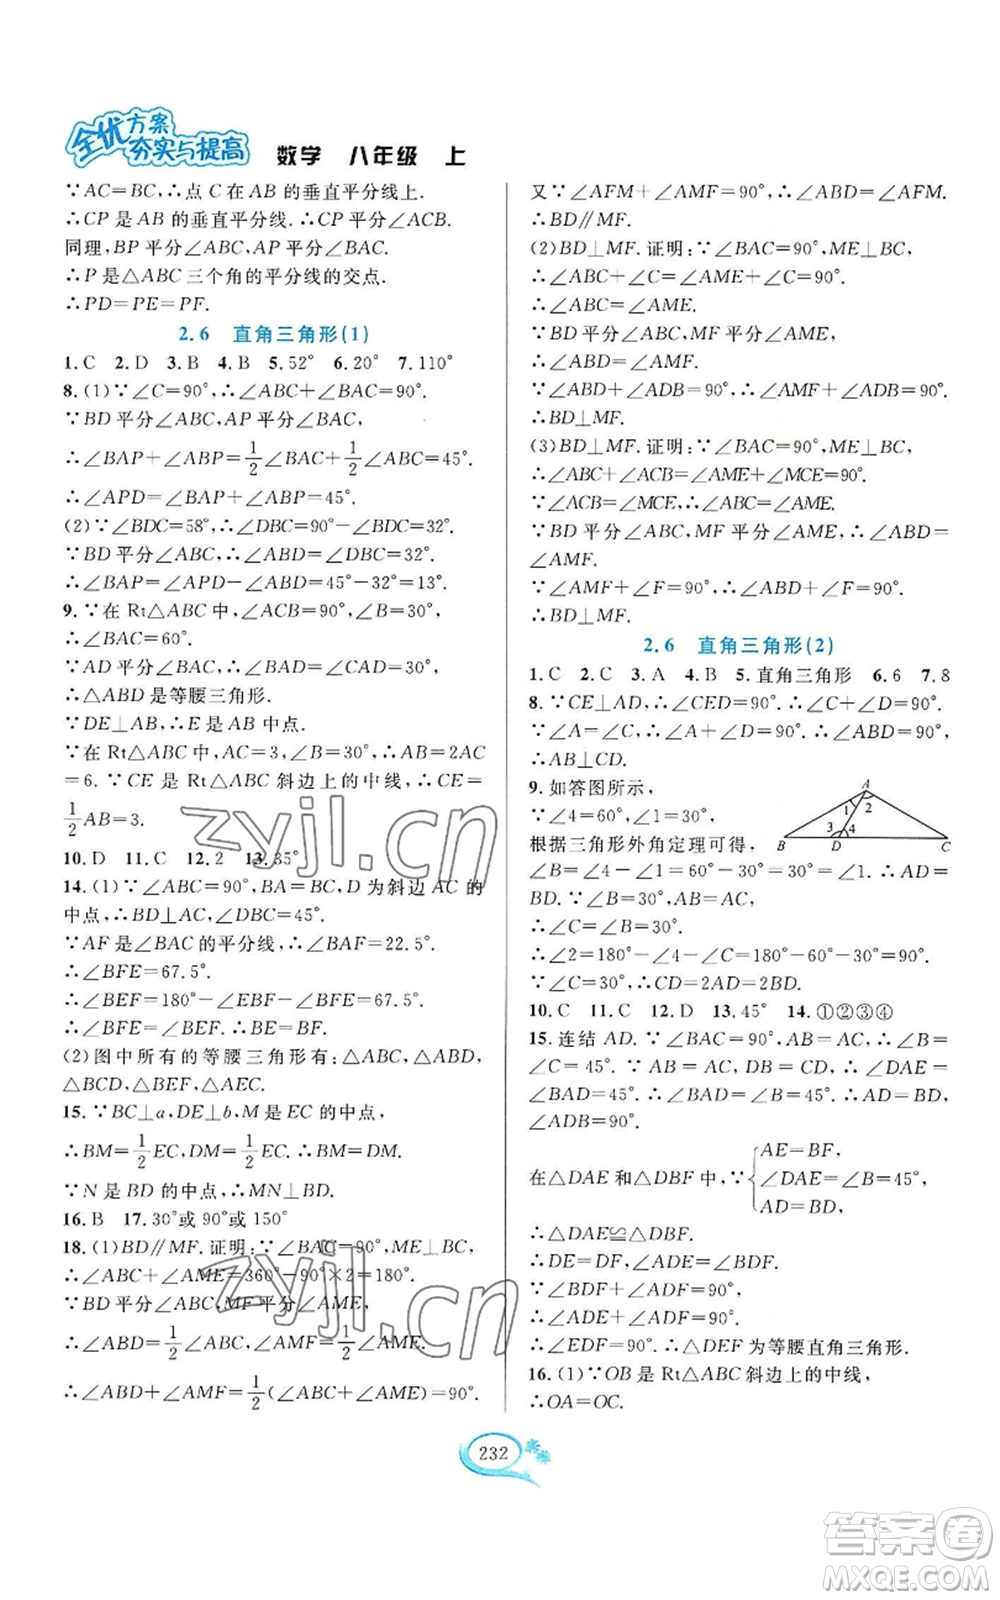 全优方案
夯实与提高 数学 八年级 上
∵AC=BC,∴点 C 在 AB 的垂直平分线上.
∴CP 是 AB 的垂直平分线.∴CP 平分∠ACB.
同理,BP 平分∠ABC,AP 平分∠BAC.
∴P 是△ABC 三个角的平分线的交点.
∴PD=PE=PF.
2.6 直角三角形(1)
1.C 2.D 3.B 4.B 5.52° 6.20° 7.110°
8.(1)∵∠C=90°,∴∠ABC+∠BAC=90°.
∵BD 平分∠ABC,AP 平分∠BAC,
∴∠BAP+∠ABP=1/2∠BAC+1/2∠ABC=45°.
∴∠APD=∠BAP+∠ABP=45°.
(2)∵∠BDC=58°,∴∠DBC=90°-∠BDC=32°.
∵BD 平分∠ABC,∴∠ABD=∠DBC=32°.
∴∠BAP=∠APD-∠ABD=45°-32°=13°.
9.∵在 Rt△ABC 中,∠ACB=90°,∠B=30°,
∴∠BAC=60°.
∵AD 平分∠BAC,∴∠BAD=∠CAD=30°.
∴△ABD 是等腰三角形.
∵DE⊥AB,∴E 是 AB 中点.
∵在 Rt△ABC 中,AC=3,∠B=30°,∴AB=2AC
=6.∵CE 是 Rt△ABC 斜边上的中线,∴CE=
1/2AB=3.
10.D 11.C 12.2 13.35°
14.(1)∵∠ABC=90°,BA=BC,D 为斜边 AC 的
中点,∴BD⊥AC,∠DBC=45°.
∵AF 是∠BAC 的平分线,∴∠BAF=22.5°.
∴∠BFE=67.5°.
∴∠BEF=180°-∠EBF-∠BFE=67.5°.
∴∠BFE=∠BEF.∴BE=BF.
(2)图中所有的等腰三角形有:△ABC,△ABD,
△BCD,△BEF,△AEC.
15.∵BC⊥a,DE⊥b,M 是 EC 的中点,
∴BM=1/2EC,DM=1/2EC.∴BM=DM.
∵N 是 BD 的中点,∴MN⊥BD.
16.B 17.30°或 90°或 150°
18.(1)BD∥MF.证明:∵∠BAC=90°,ME⊥BC,
∴∠ABC+∠AME=360°-90°×2=180°.
∵BD 平分∠ABC,MF 平分∠AME,
∴∠ABD=1/2∠ABC,∠AMF=1/2∠AME.
∴∠ABD+∠AMF=1/2(∠ABC+∠AME)=90°.
又∵∠AFM+∠AMF=90°,∴∠ABD=∠AFM.
∴BD∥MF.
(2)BD⊥MF.证明:∵∠BAC=90°,ME⊥BC,
∴∠ABC+∠C=∠AME+∠C=90°.
∴∠ABC=∠AME.
∵BD 平分∠ABC,MF 平分∠AME,
∴∠ABD=∠AMF.
∵∠ABD+∠ADB=90°,∴∠AMF+∠ADB=90°.
∴BD⊥MF.
(3)BD⊥MF.证明:∵∠BAC=90°,ME⊥BC,
∴∠ABC+∠ACB=∠AME+∠MCE=90°.
∵∠ACB=∠MCE,∴∠ABC=∠AME.
∵BD 平分∠ABC,MF 平分∠AME,∴∠ABD=
∠AMF.
∵∠AMF+∠F=90°,∴∠ABD+∠F=90°.
∴BD⊥MF.
2.6 直角三角形(2)
1.C 2.C 3.A 4.B 5.直角三角形 6.6 7.8
8.∵CE⊥AD,∴∠CED=90°.∴∠C+∠D=90°.
∵∠A=∠C,∴∠A+∠D=90°.
∴AB⊥CD.
9.如答图所示,
∵∠4=60°,∠1=30°,
根据三角形外角定理可得,
∠B=∠4-∠1=60°-30°=30°=∠1.∴AD=
BD.∵∠C=∠B=30°.
∴∠C=∠B=30°.
∴∠2=180°-∠4-∠C=180°-60°-30°=90°.
∵∠C=30°,∴CD=2AD=2BD.
A
1
2
3 4
B D C
10.C 11.C 12.D 13.45° 14.①②③④
15.连结 AD.∵∠BAC=90°,BA=AC,∴∠B=
∠C=45°.∵BA=AC,DB=CD,∴∠DAE=
∠BAD=45°.∴∠BAD=∠B=45°.∴AD=BD,
∠ADB=90°.
在△DAE 和△DBF 中,∵{AE=BF,
∠DAE=∠B=45°,
AD=BD,
∴△DAE≌△DBF.
∴DE=DF,∠ADE=∠BDF.
∵∠BDF+∠ADF=90°,
∴∠ADE+∠ADF=90°.
∴∠EDF=90°.∴△DEF 为等腰直角三角形.
16.(1)∵OB 是 Rt△ABC 斜边上的中线,
∴OA=OC.
232
zyjl.cn
zyjl.cn
答案圈
MXQE.COM